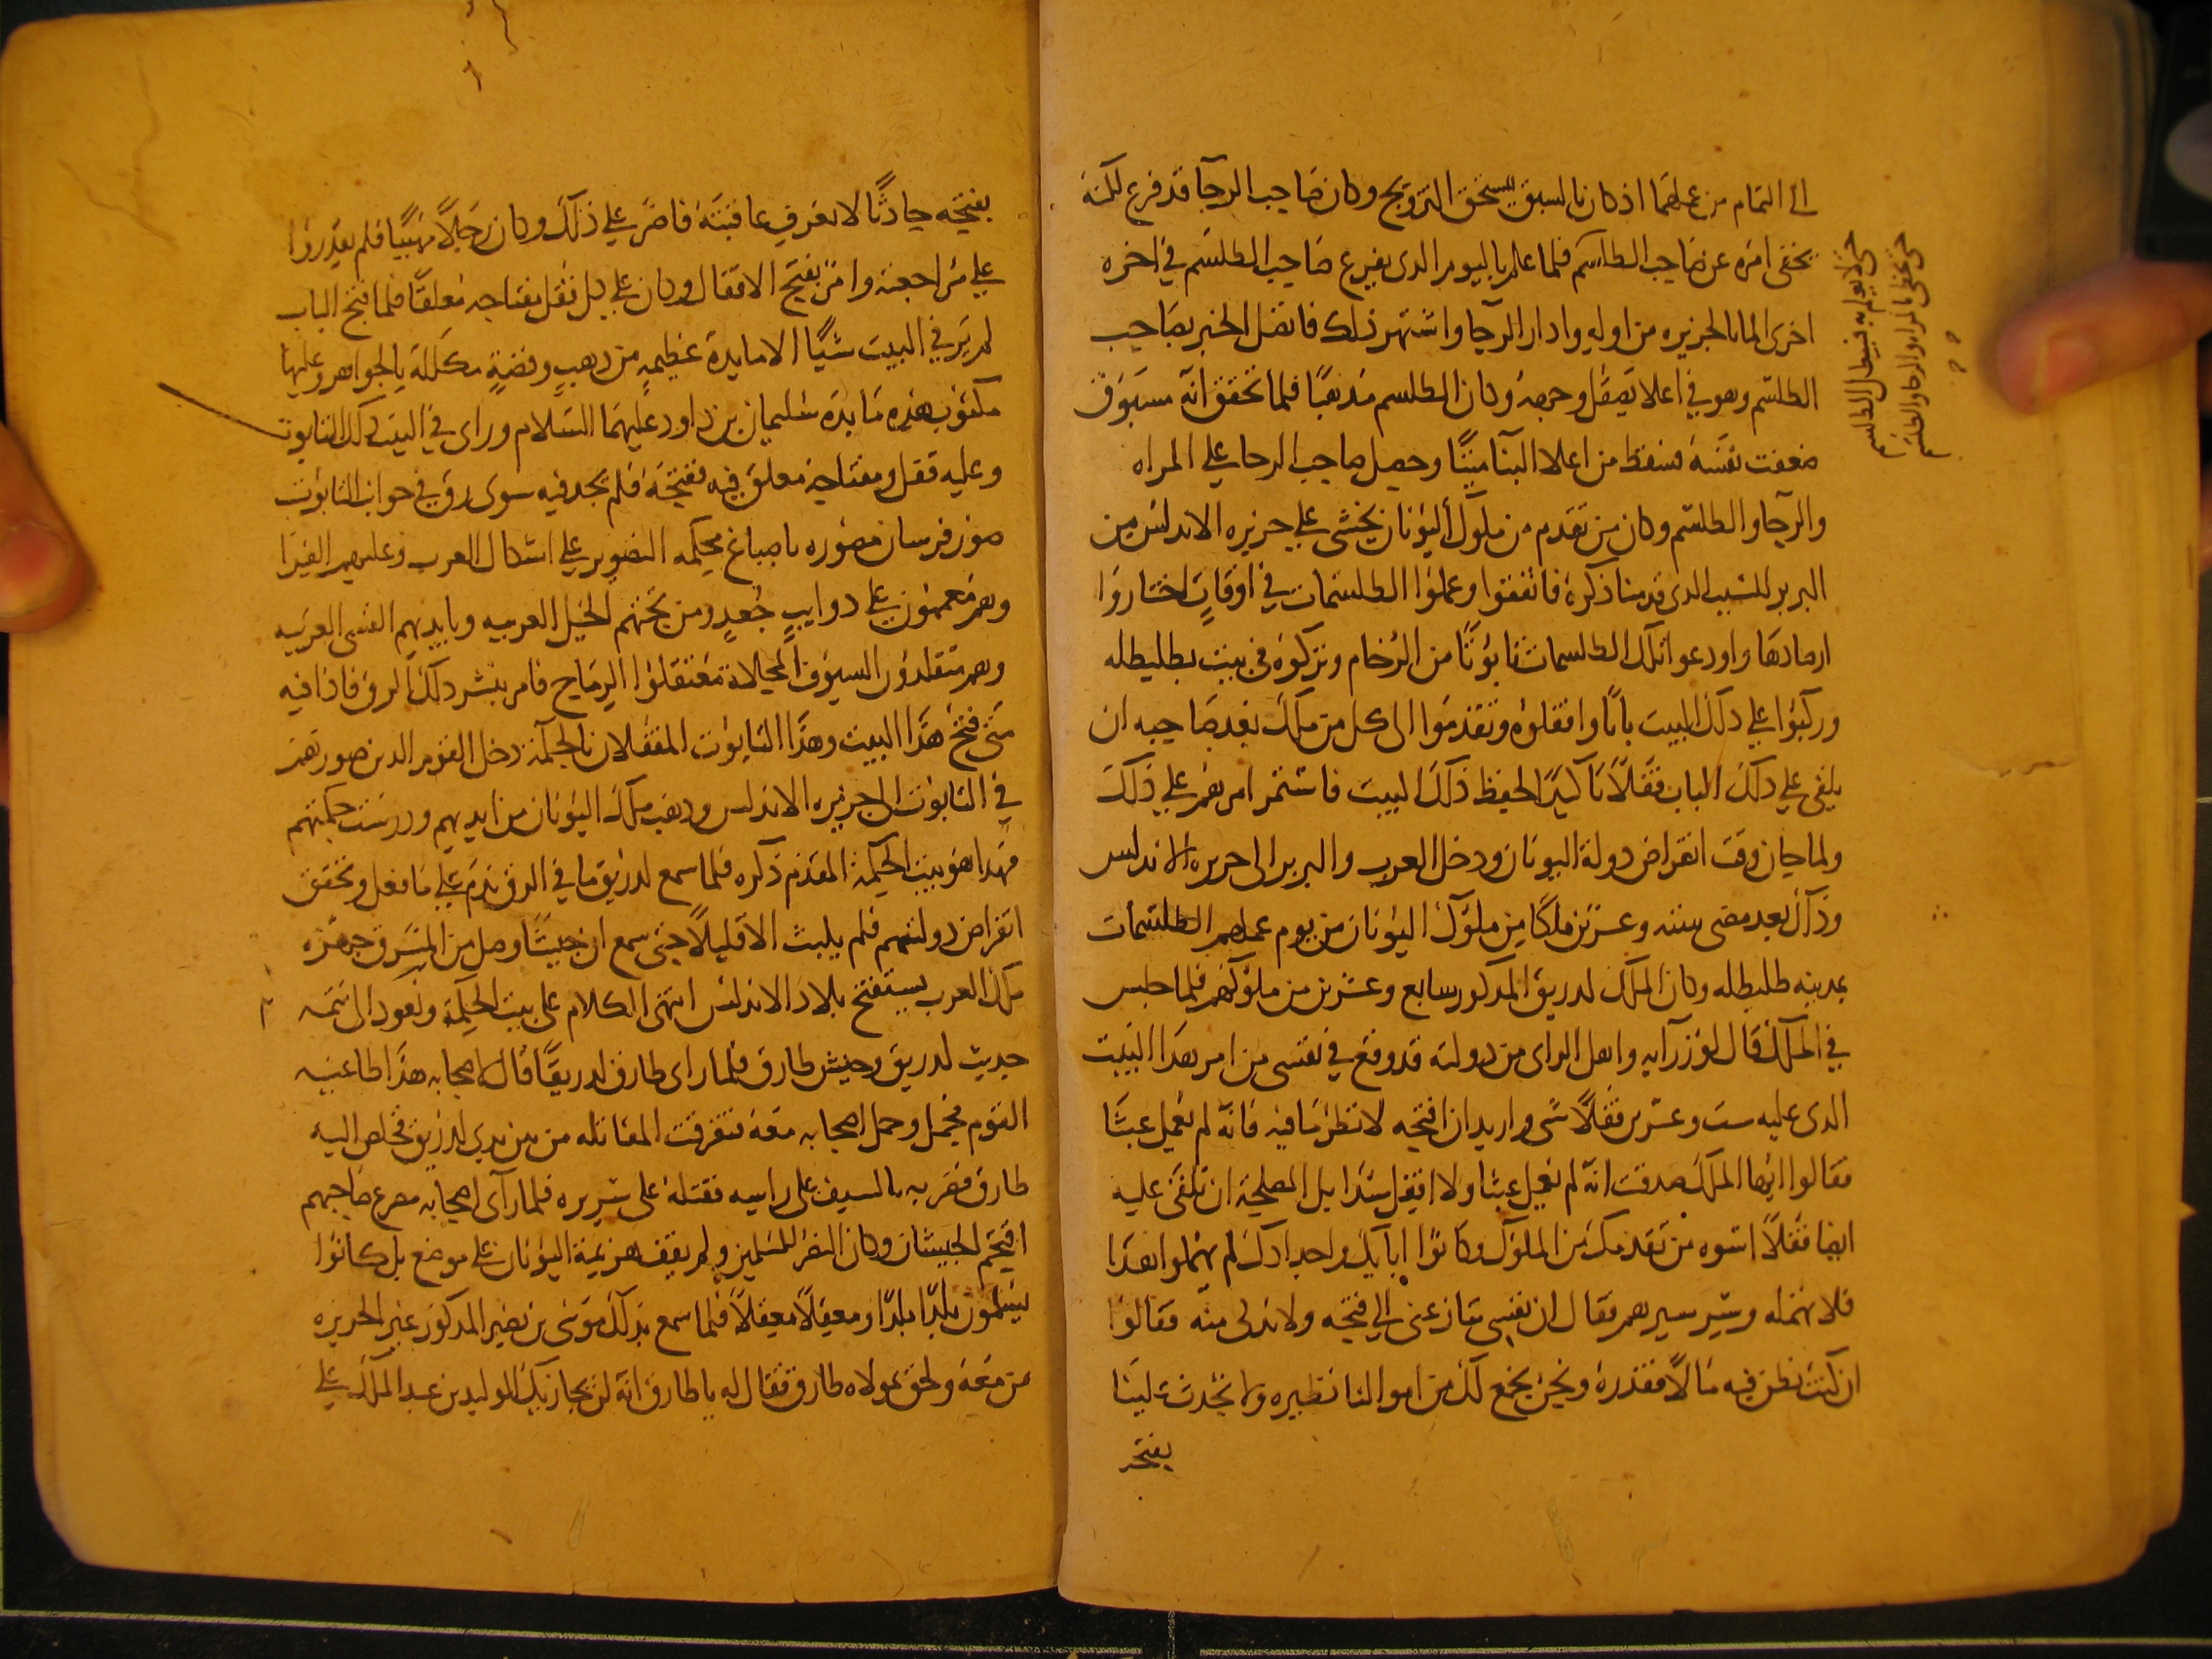 الى التمام من عملهما اذ كان بالسبق يستحق التزويج وكان صاحب الرحا قد فرغ لكنه
يخفى امره عن صاحب الطلسم فلما علم باليوم الدى يفرغ صاحب الطلسم في اخره
اجرى الما بالجزيره من اوله وادار الرحا واشتهر ذلك فاتصل الخبر بصاحب
الطلسم وهو في اعلا يصقل وجهه وكان الطلسم مدهبًا فلما تحقق انه مسبوق
ضعفت نفسه فسقط من اعلا البنا ميتًا وحصل صاحب الرحا على المراه
والرحا والطلسم وكان من تقدم من ملوك اليونان يخشى على جزيره الاندلس من
البربر للسبب الدى قدمنا ذكره فاتفقوا وعملوا الطلسمات في اوقات اختاروا
ارصادها واودعوا تلك الطلسمات تابوتًا من الرخام وتركوه في بيت بطليطله
وركبوا على دلك البيت بابًا واقفلوه وتقدموا الى كل من ملك بعد صاحبه ان
يلقى على دلك الباب قفلًا تاكيدًا لحفظ ذلك البيت فاستمر امرهم على ذلك
ولما حان وقت انقراض دولة اليونان ودخل العرب والبربر الى جزيره الاندلس
وذلك بعد مضى سته وعشرين ملكًا من ملوك اليونان من يوم عملهم الطلسمات
بمدينه طليطله وكان الملك لدريق المدكور سابع وعشرين من ملوكهم فلما جلس
في الملك قال لوزرايه واهل الراى من دولته قد وقع في نفسى من امر هدا البيت
الدى عليه ست وعشرين قفلًا شى واريد ان افتحه لانظر ما فيه فانه لم يعمل عبثًا
فقالوا ايها الملك صدقت انه لم يعمل عبثا ولا اقفل سدا بل المصلحة ان تلقى عليه
ايضا قفلًا اسوه من تقدمك من الملوك وكانوا اباك واجدادك لم يهملوا هدا
فلا تهمله وسر سيرهم فقال ان نفسى تنازعنى الى فتحه ولابد لى منه فقالوا
ان كنت تظن فيه مالًا فقدره ونحن نجمع لك من اموالنا نظيره ولا تحدث علينا
بفتحه
حتى لا يعلم به فيبطل الطلسم
حتى يحظى بالمراه والرحا والطلسم
بفتحه حادثًا لا نعرف عاقبته فاصر على ذلك وكان رجلًا مهيبًا فلم يقدروا
على مراجعته وامر بفتح الاقفال وكان على كل قفل مفتاحه معلقًا فلما فتح الباب
لم ير في البيت شيًا الا مايدة عظيمه من دهب وفضة مكللة بالجواهر وعليها
مكتوب هذه مايدة سليمان بن داود عليهما السلام وراى في البيت دلك التابوت
وعليه قفل ومفتاحه معلق فيه ففتحه فلم يجد فيه سوى رق وفي جوانب التابوت
صور فرسان مصوره باصباغ محكمه التصوير على اشكال العرب وعليهم الفرا
وهم معممون على دوايب جعد ومن تحتهم الخيل العربيه وبايديهم القسى العربيه
وهم متقلدون السيوف المحلاة معتقلوا الرماح فامر بنشر دلك الرق فاذا فيه
متى فتح هذا البيت وهذا التابوت المقفلان بالحكمة دخل القوم الدين صورهم
في التابوت الى جزيره الاندلس ودهب ملك اليونان من ايديهم ودرست حكمتهم
فهدا هو بيت الحكمة المقدم ذكره فلما سمع لدريق ما في الرق ندم على ما فعل وتحقق
انقراض دولتهم فلم يلبث الا قليلًا حتى سمع ان جيشًا وصل من المشرق جهزه
ملك العرب يستفتح بلاد الاندلس انتهى الكلام على بيت الحكمة ونعود الى تتمه
حديث لدريق وجيش طارق فلما راى طارق لدريقًا قال لاصحابه هذا طاغيه
القوم فحمل وحمل اصحابه معه فتفرقت المقاتله من بين يدى لدريق فخلص اليه
طارق فضربه بالسيف على راسه فقتله على سريره فلما راى اصحابه مصرع صاحبهم
اقتحم الجيشان وكان النصر للمسلمين ولم يقف هزيمة اليونان على موضع بل كانوا
يسلمون بلدًا بلدًا ومعقلًا معقلًا فلما سمع بذلك موسى بن نصير المدكور عبر الجزيره
بمن معه ولحق بمولاه طارق فقال له يا طارق انه لن يجازيك الوليد بن عبد الملك على